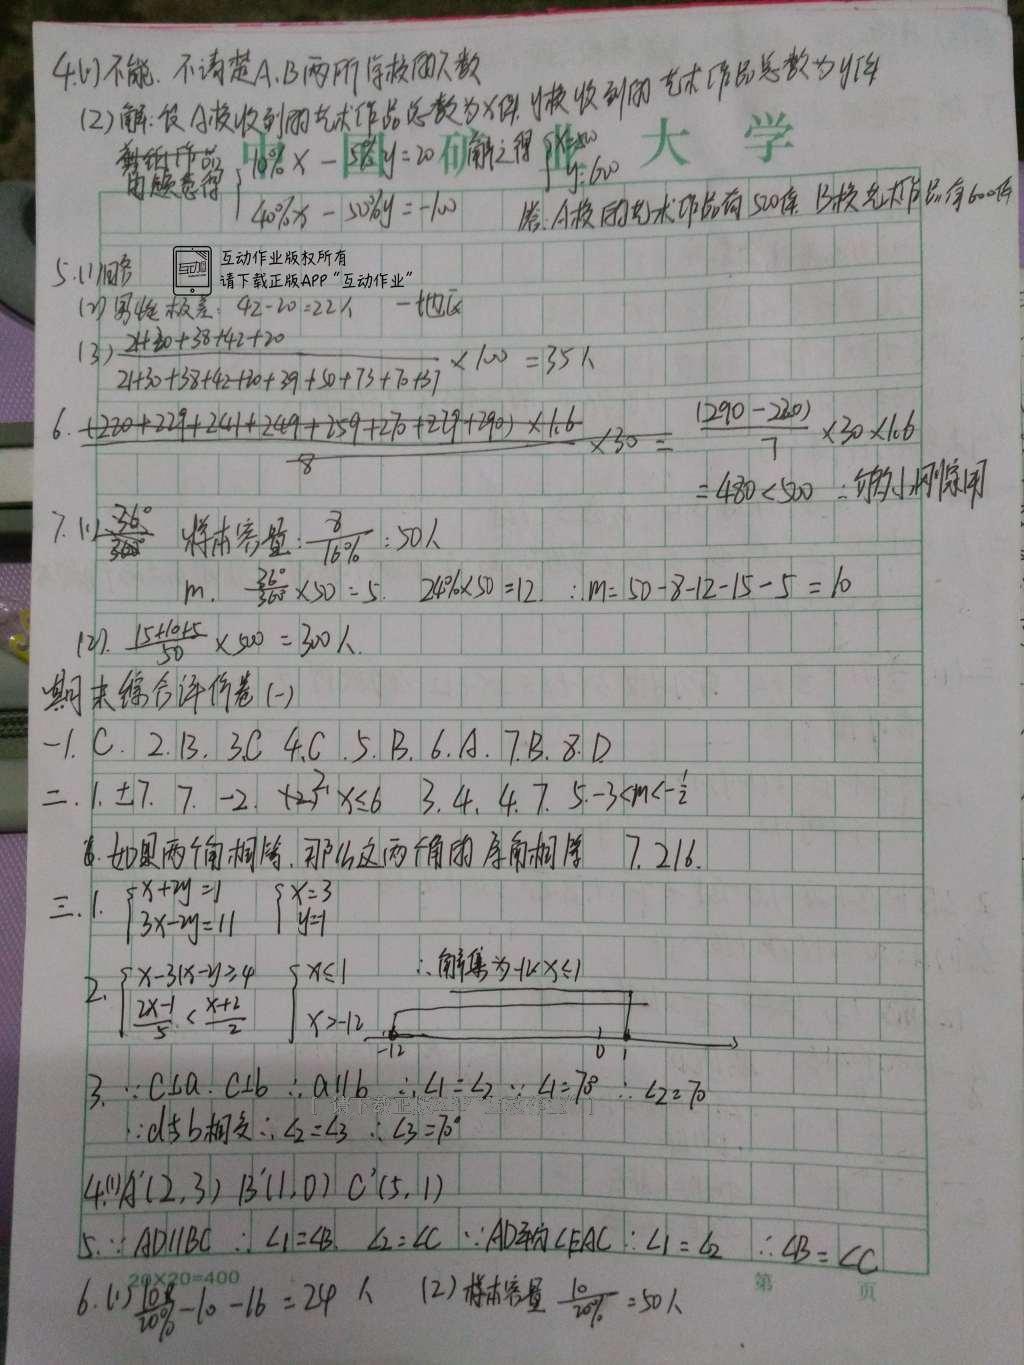 4.(1)不能. 不清楚A、B两所学校的人数
(2)解:设A校收到的艺术作品总数为x件, y校收到的艺术作品总数为y件
中国矿业大学
由题意得 { 10%x - 5%y = 20 解之得 { x=500
40%x - 50%y = -100 y=600
答:A校的艺术作品有500件 B校艺术作品有600件
互动作业版权所有
请下载正版APP“互动作业”
5.(1)
(2)男性极差: 42-20=22人 一地区
(3) (21+30+38+42+20)/(21+30+38+42+20+39+50+73+70+37) ×100 = 35人
6. (220+229+241+249+259+270+279+290)×1.6/8 ×30 = (290-220)/7 ×30×1.6
=480<500 ∴够小刚家用
7.(1) 36°/360° 样本容量: 8/16% = 50人
m. 36°/360° ×50=5. 24%×50=12. ∴m=50-8-12-15-5=10
(2). (15+10+5)/50 ×500 = 300人.
期末综合评价卷(一)
一1. C. 2.B. 3.C 4.C .5. B. 6. A. 7. B. 8. D.
二. 1. ±7. 7. -2. 2. x≤6 3. 4. 4. 7. 5. -3<m<-1/2
6. 如果两个角相等,那么这两个角的余角相等 7. 216.
三. 1. { x+2y=1 { x=3
3x-2y=11 y=-1
2. { x-3(x-2)≥4 { x≤1 ∴解集为-12<x≤1
(2x-1)/5 < (x+2)/2 x>-12
-12 0 1
3. ∵C⊥a. C⊥b ∴a∥b ∴∠1=∠2 ∵∠1=70° ∴∠2=70
∵d与b相交∴∠2=∠3 ∴∠3=70°
4.(1)A'(2,3) B'(1,0) C'(5,1)
5. ∵AD∥BC ∴∠1=∠B. ∠2=∠C ∵AD平分∠EAC ∴∠1=∠2 ∴∠B=∠C
20×20=400 第 页
6.(1) 10/20% -10-16=24 人 (2)样本容量 10/20% =50人